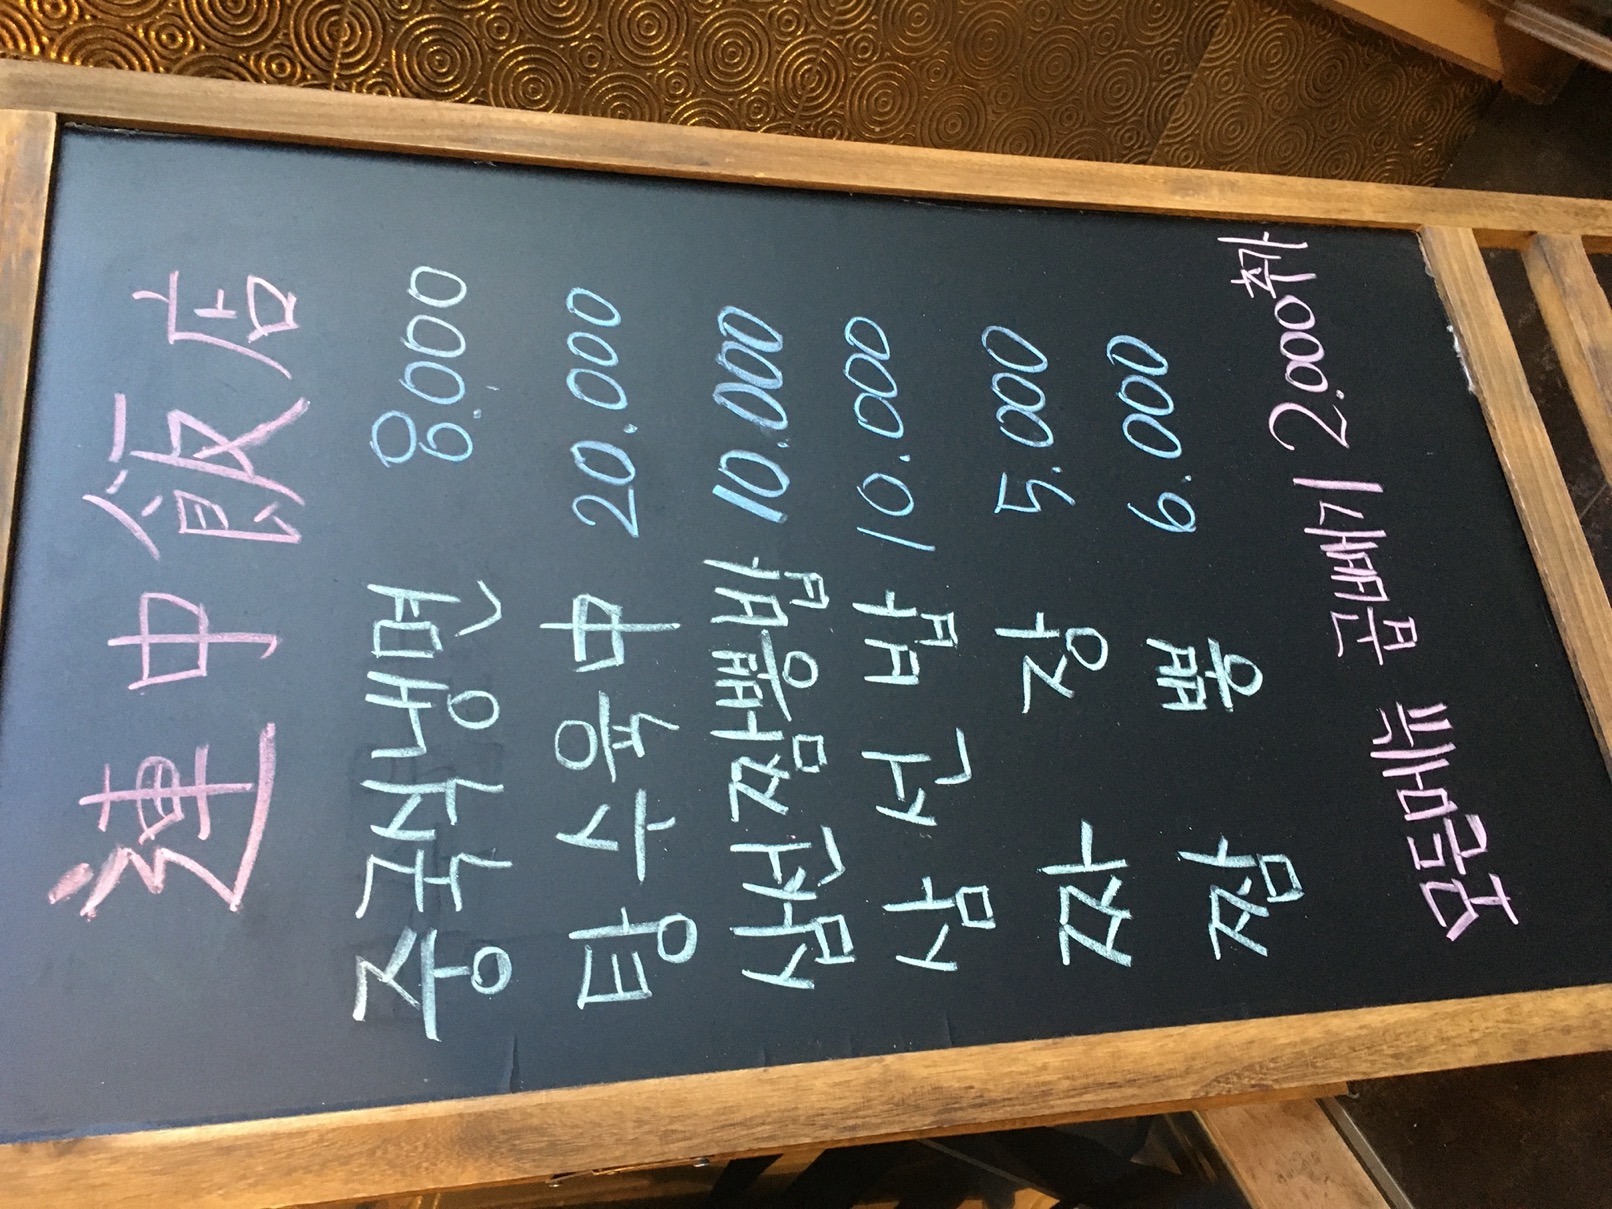 連中飯店
중국식냉면 8.000
탕수육中 20.000
삼선짬뽕밥 10.000
삼선밥 10.000
짜장 5.000
짬뽕 6.000
모든메뉴 곱빼기 2.000추가